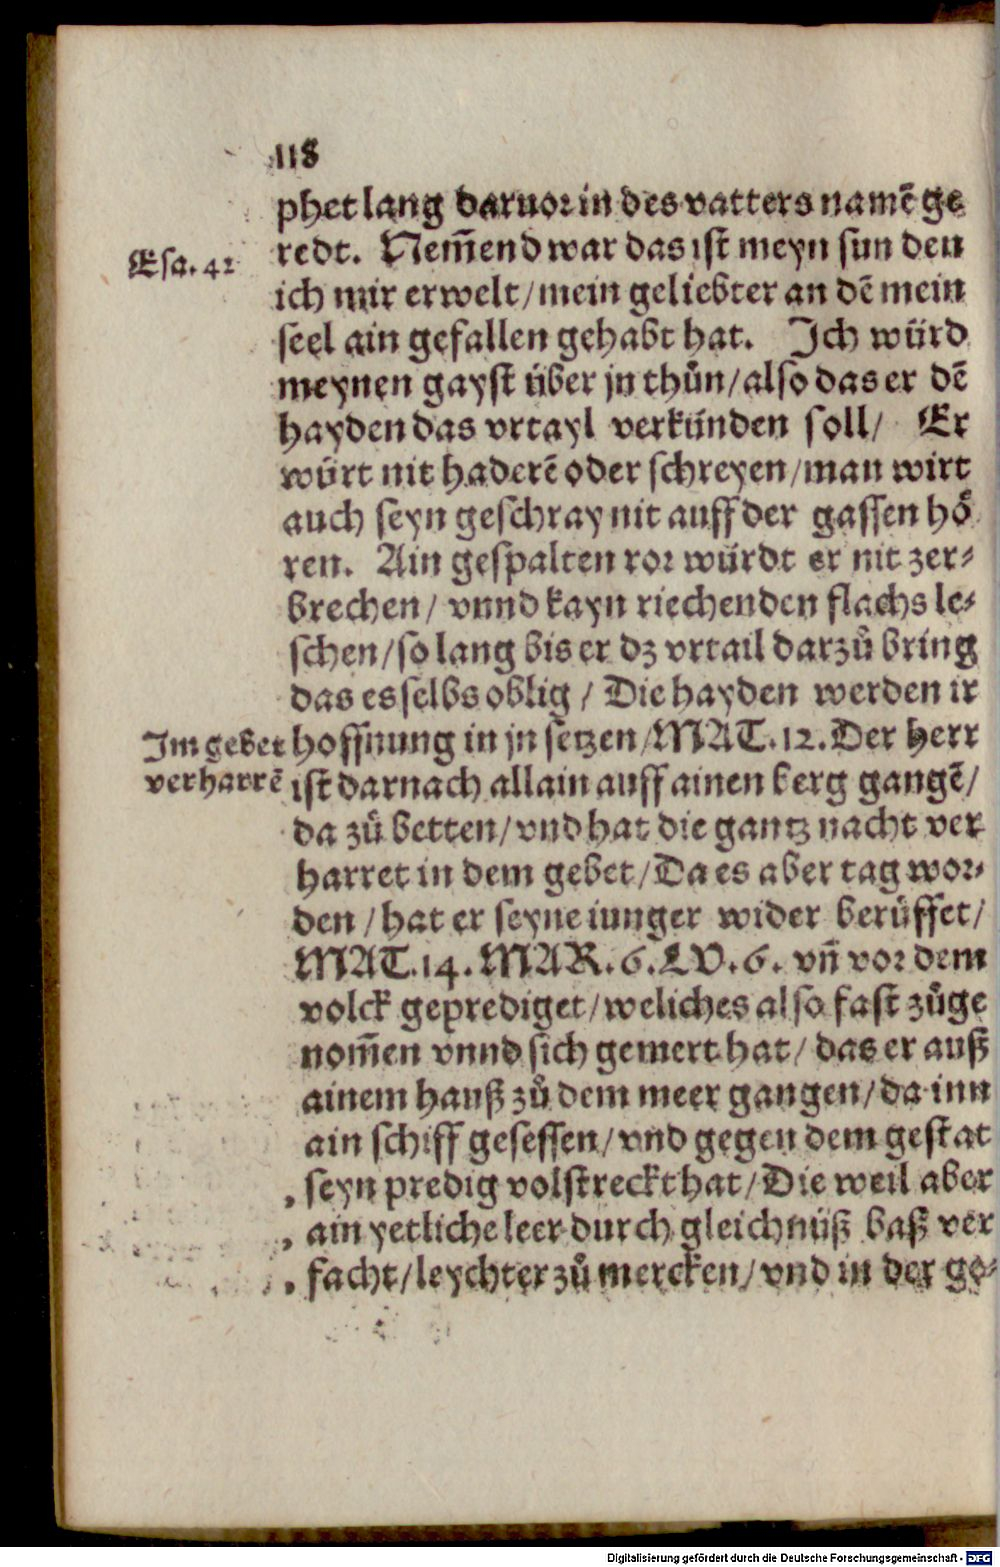 118
phet lang daruor in des vatters namẽ ge
redt. Nem̃end war das ist meyn sun den
Esa. 42
ich mir erwelt/mein geliebter an dẽ mein
seel ain gefallen gehabt hat. Ich würd
meynen gayst über jn thůn/also das er dẽ
hayden das vrtayl verkünden soll/ Er
würt nit haderẽ oder schreyen/man wirt
auch seyn geschray nit auff der gassen hö
ren. Ain gespalten ror würdt er nit zer⸗
brechen/ vnnd kayn riechenden flachs le⸗
schen/so lang bis er dz vrtail darzů bring
das es selbs oblig / Die hayden werden ir
Im gebet
verharrẽ
hoffnung in jn setzen/MAT.12.Der herr
ist darnach allain auff ainen berg gangẽ/
da zů betten/vnd hat die gantz nacht ver
harret in dem gebet/Da es aber tag wor⸗
den /hat er seyne iunger wider berůffet/
MAT.14.MAR.6.LV.6. vñ vor dem
volck geprediget/weliches also fast zůge
nom̃en vnnd sich gemert hat/ das er auß
ainem hauß zů dem meer gangen/da inn
ain schiff gesessen/vnd gegen dem gestat
seyn predig volstreckt hat/Die weil aber
ain yetliche leer durch gleichnüß baß ver
facht/leychter zů mercken/vnd in der ge⸗
Digitalisierung gefördert durch die Deutsche Forschungsgemeinschaft - DFG